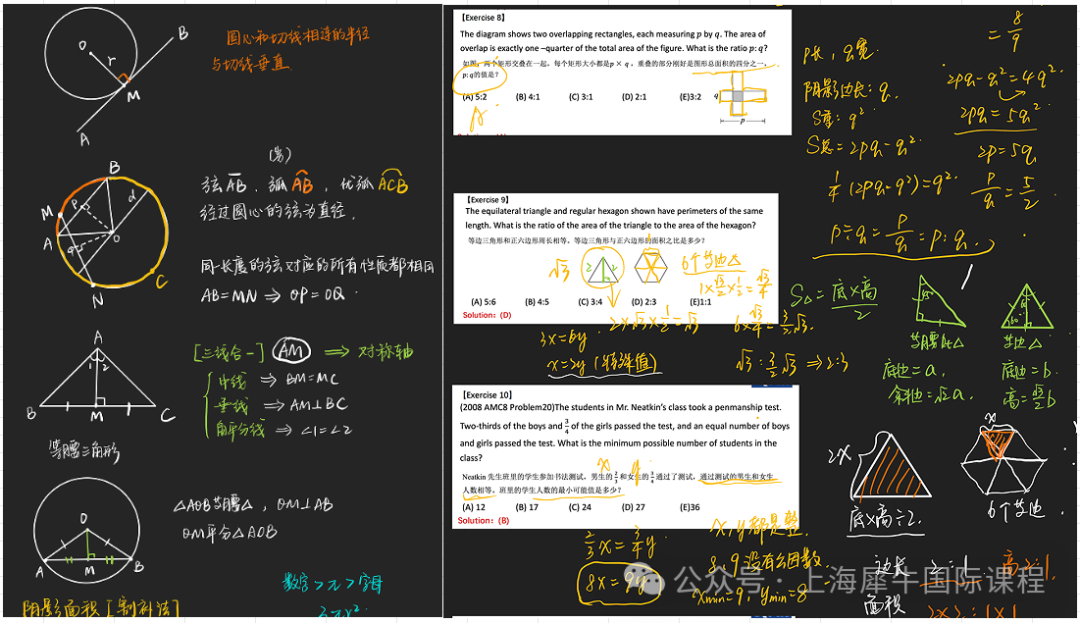 圆心和切线相连的半径
与切线垂直.
O
r
B
M
A
(劣)
弦AB, 弧AB, 优弧ACB
经过圆心的弦为直径.
同一长度的弦对应的所有性质都相同
AB=MN ⇒ OP=OQ
B
M
P
d
A
O
C
N
A
1 2
B
M
C
等腰三角形
[三线合一] AM ⇒ 对称轴
中线 ⇒ BM=MC
垂线 ⇒ AM⊥BC
角平分线 ⇒ ∠1=∠2
O
A
M
B
△AOB等腰△, OM⊥AB
OM平分△AOB
数字>π>字母
阴影面积[割补法]
【Exercise 8】
The diagram shows two overlapping rectangles, each measuring p by q. The area of
overlap is exactly one –quarter of the total area of the figure. What is the ratio p: q?
如图, 两个矩形交叠在一起, 每个矩形大小都是p × q, 重叠的部分刚好是图形总面积的四分之一,
p:q的值是?
(A) 5:2 (B) 4:1 (C) 3:1 (D) 2:1 (E)3:2
A
q
p
【Exercise 9】
The equilateral triangle and regular hexagon shown have perimeters of the same
length. What is the ratio of the area of the triangle to the area of the hexagon?
等边三角形和正六边形周长相等, 等边三角形与正六边形的面积之比是多少?
√3
2
2
1
6个等边△
1×√3/2×1/2=√3/4
(A) 5:6 (B) 4:5 (C) 3:4 (D) 2:3 (E)1:1
Solution: (D)
2×√3×1/2=√3
6×√3/4=3/2√3.
3x=6y
x=2y (特殊值)
√3:3/2√3 ⇒ 2:3
[Exercise 10]
(2008 AMC8 Problem20)The students in Mr. Neatkin’s class took a penmanship test.
Two-thirds of the boys and 3/4 of the girls passed the test, and an equal number of boys
and girls passed the test. What is the minimum possible number of students in the
class?
x y
Neatkin 先生班里的学生参加书法测试, 男生的2/3和女生的3/4通过了测试, 通过测试的男生和女生
人数相等, 班里的学生人数的最小可能值是多少?
(A) 12 (B) 17 (C) 24 (D) 27 (E)36
Solution: (B)
2/3x=3/4y
8x=9y
x,y都是整
8,9没有公因数
xmin=9, ymin=8
=8/9
p长, q宽.
阴影边长: q.
S重: q²
S总=2pq-q².
1/4(2pq-q²)=q².
2pq-q²=4q².
2pq=5q²
2p=5q
p/q=5/2
p÷q=p/q=p:q.
S△=底×高/2
45°
等腰Rt△
底边=a,
斜边=√2a.
60°
等边△
底边=b.
高=√3/2b
2x
底×高÷2.
x
6个等边
边长 2:1 高2:1.
面积 2×2:1×1
公众号·上海犀牛国际课程